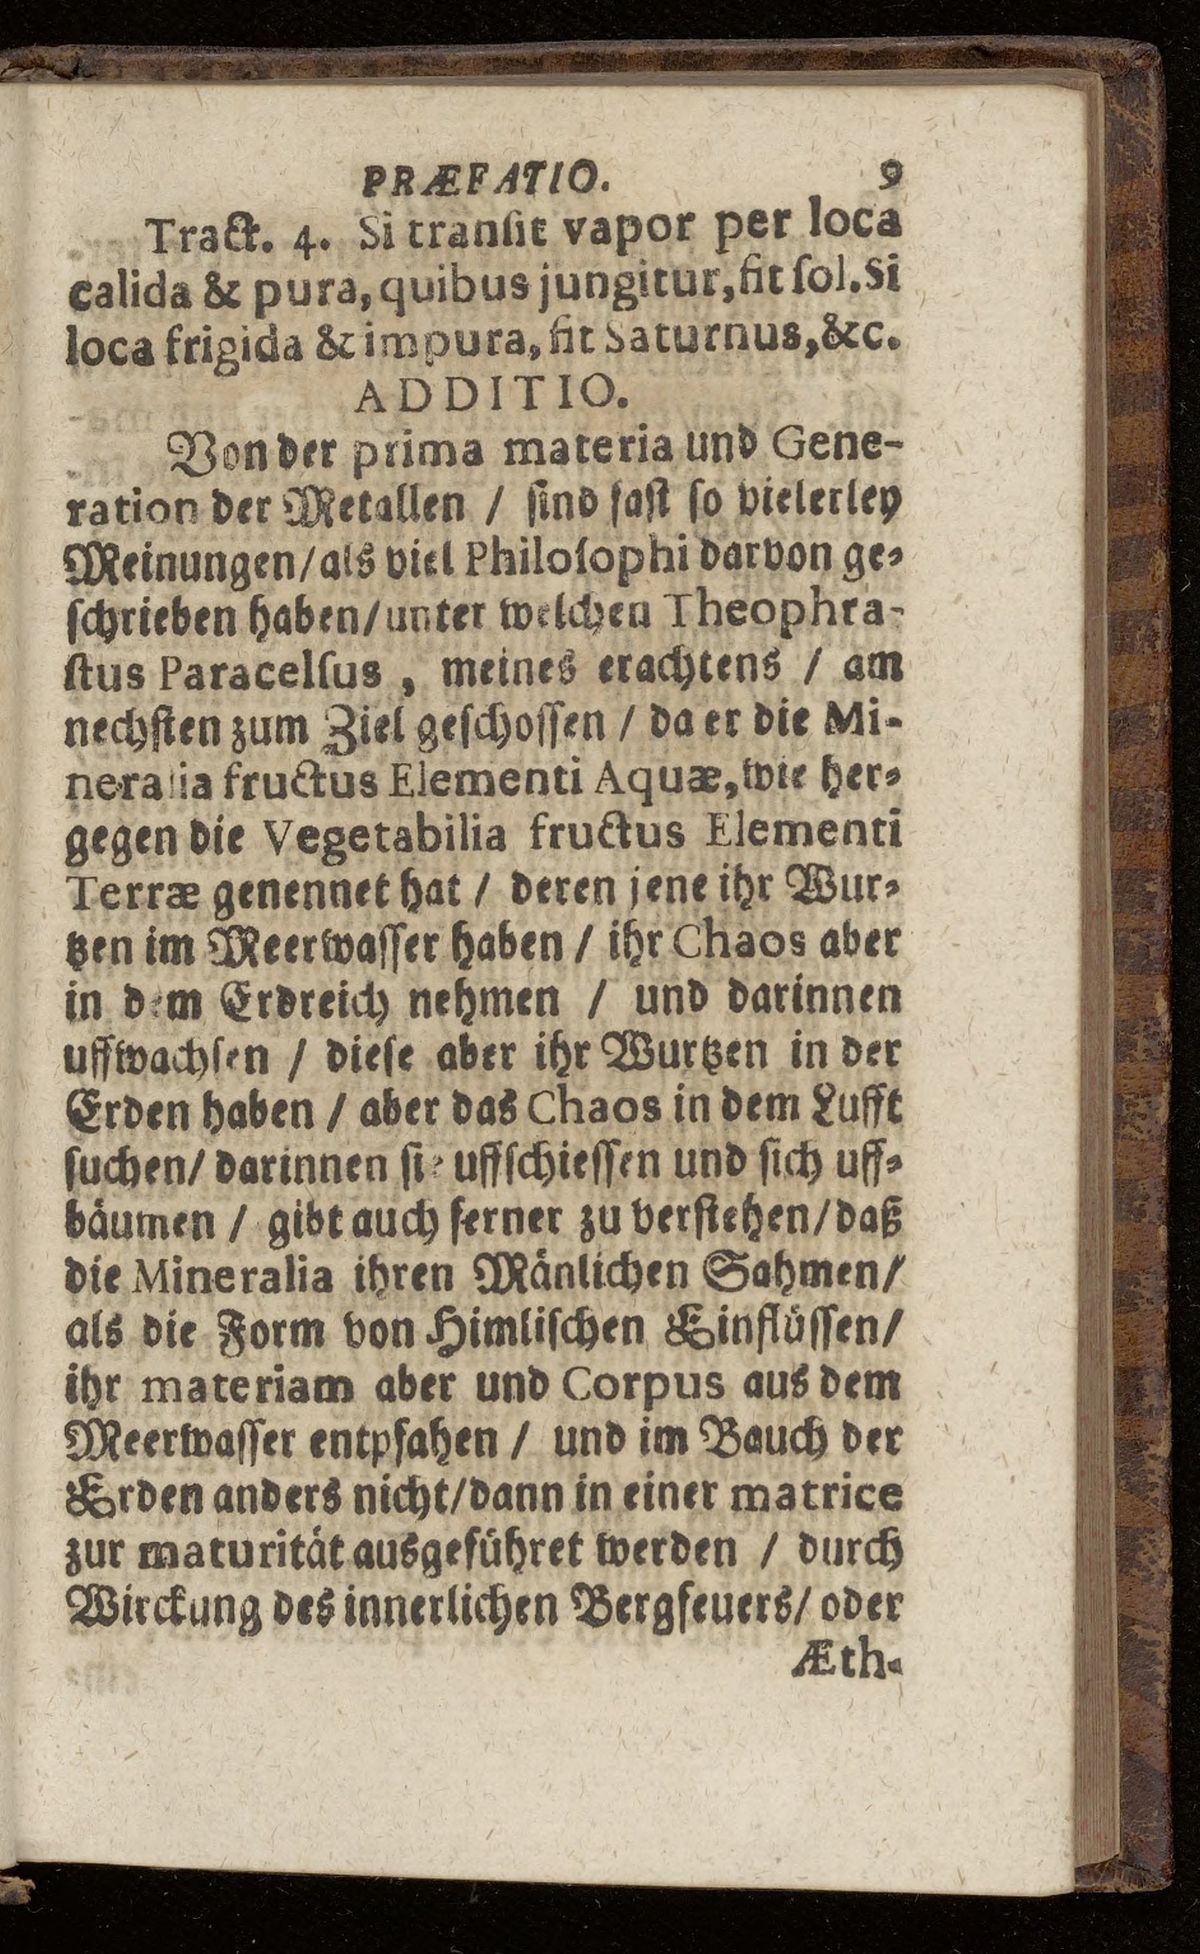 PRÆFATIO. 9
Tract. 4. Si tranſit vapor per loca
calida & pura, quibus jungitur, fit ſol. Si
loca frigida & impura, fit Saturnus, &c.
ADDITIO.
Von der prima materia und Gene-
ration der Metallen / ſind faſt ſo vielerley
Meinungen / als viel Philoſophi darvon ge-
ſchrieben haben / unter welchen Theophra-
ſtus Paracelſus , meines erachtens / am
nechſten zum Ziel geſchoſſen / da er die Mi-
neralia fructus Elementi Aquæ, wie her-
gegen die Vegetabilia fructus Elementi
Terræ genennet hat / deren jene ihr Wur-
tzen im Meerwaſſer haben / ihr Chaos aber
in dem Erdreich nehmen / und darinnen
uffwachſen / dieſe aber ihr Wurtzen in der
Erden haben / aber das Chaos in dem Lufft
ſuchen / darinnen ſie uffſchieſſen und ſich uff-
bäumen / gibt auch ferner zu verſtehen / daß
die Mineralia ihren Mänlichen Sahmen /
als die Form von Himliſchen Einflüſſen /
ihr materiam aber und Corpus aus dem
Meerwaſſer entpfahen / und im Bauch der
Erden anders nicht / dann in einer matrice
zur maturität ausgeführet werden / durch
Wirckung des innerlichen Bergfeuers / oder
Æth-